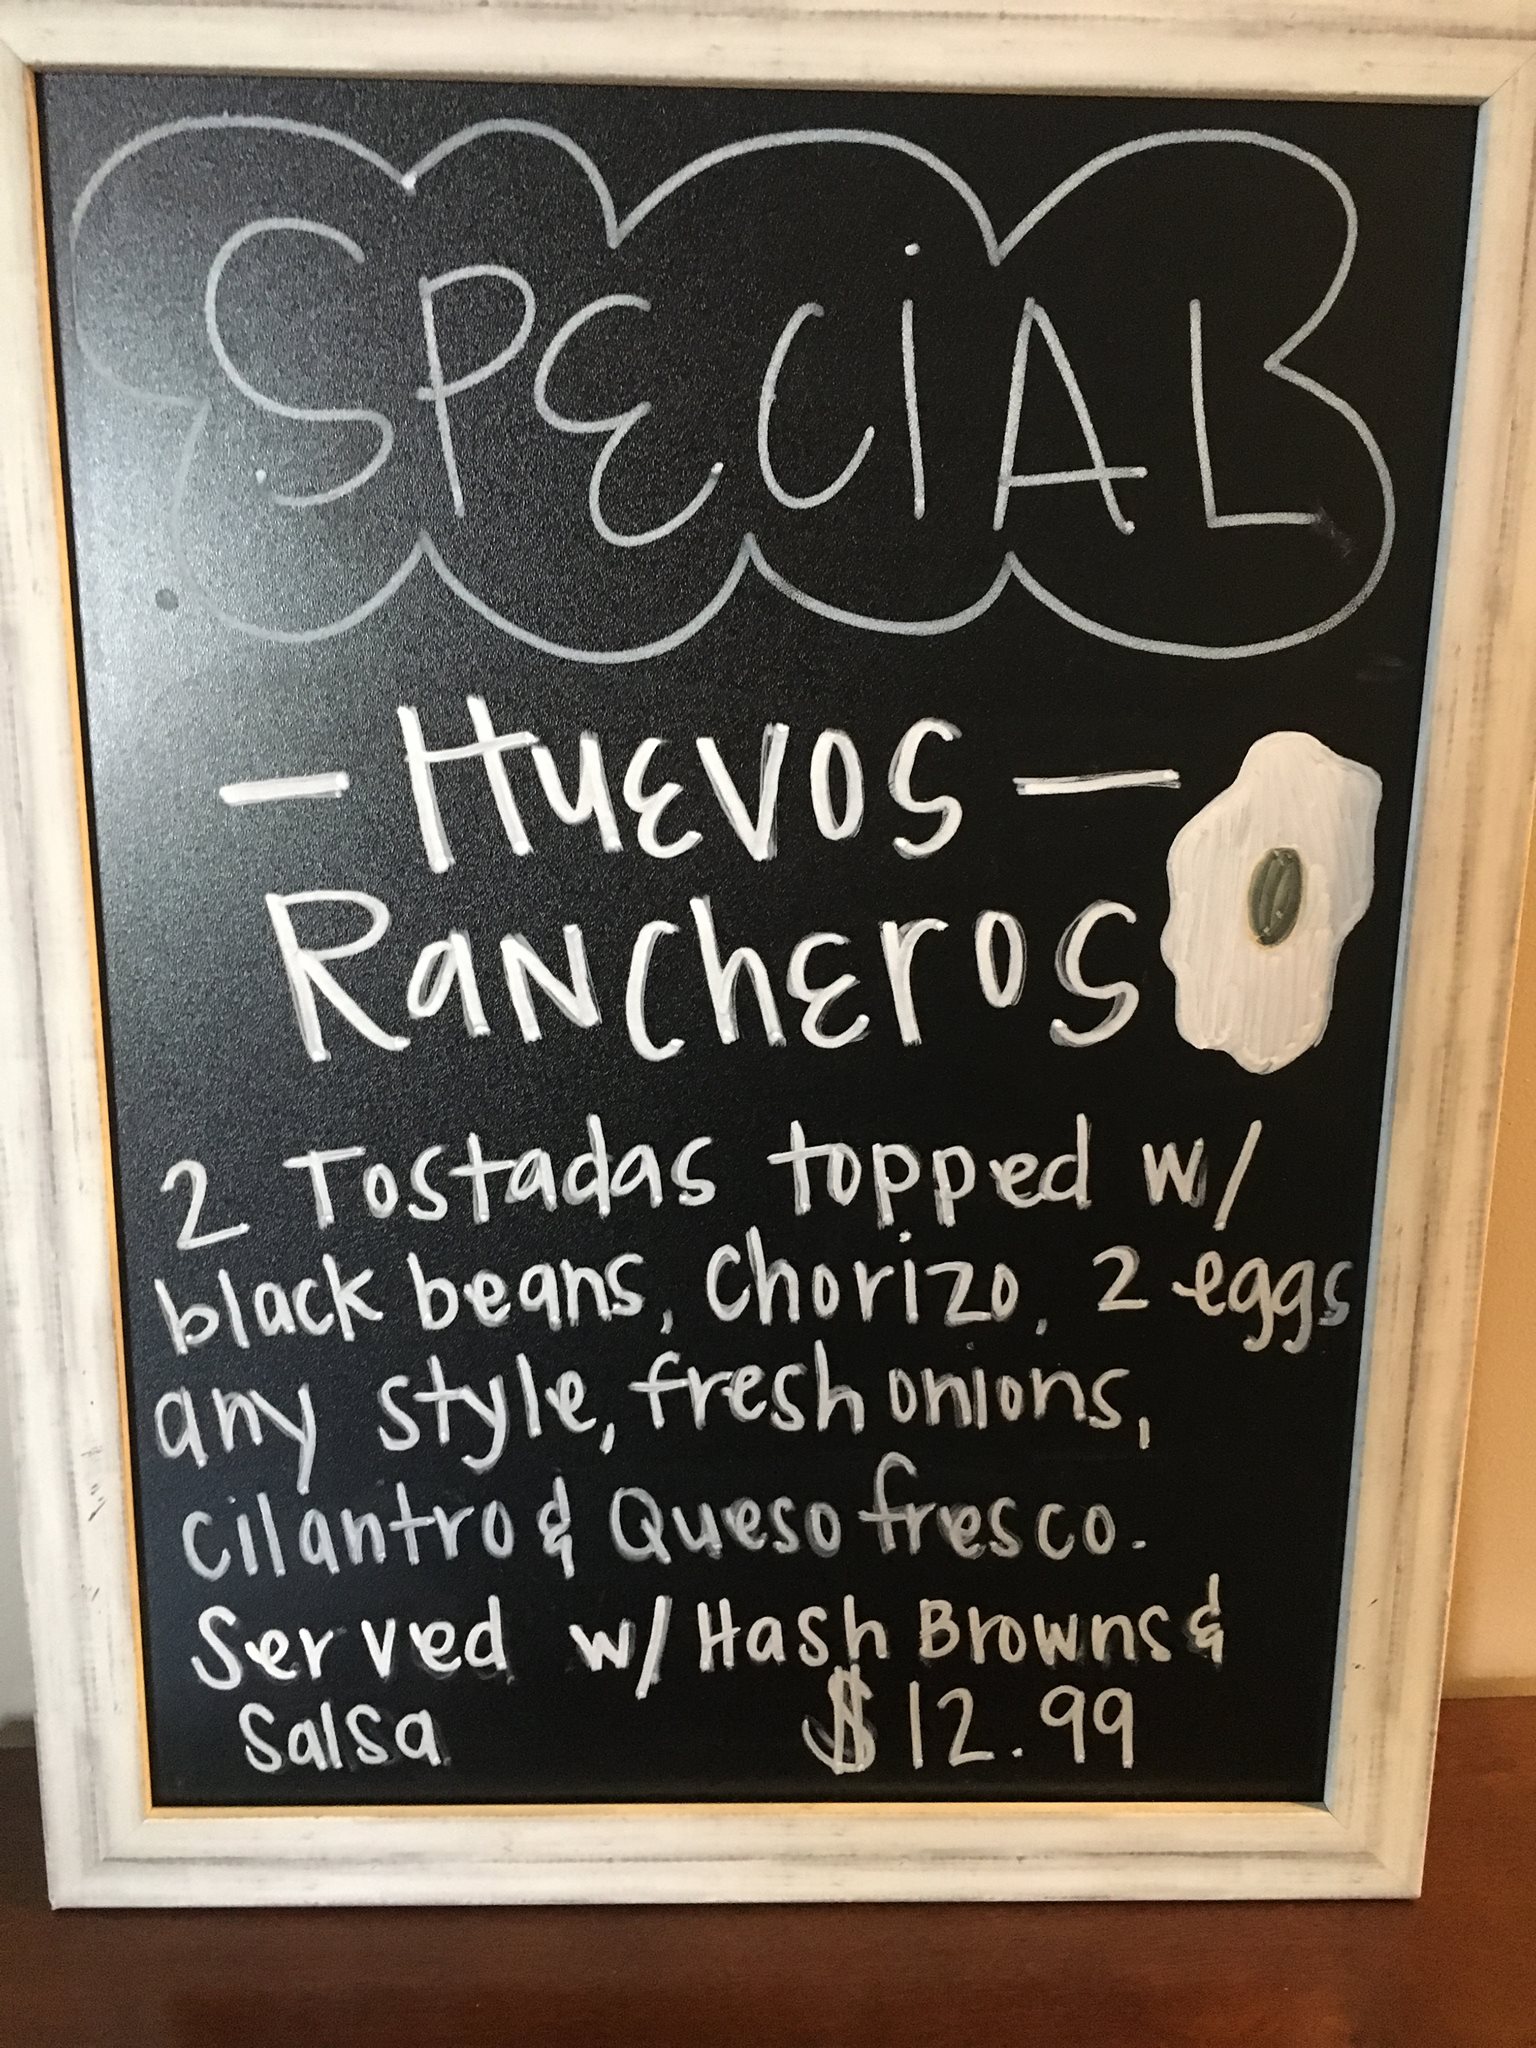 SPECiAL
- HUEVOS -
RANCHEROS
2 Tostadas topped w/
black beans, Chorizo, 2 eggs
any style, fresh onions,
cilantro & Queso fresco.
Served w/ Hash Browns &
Salsa $12.99